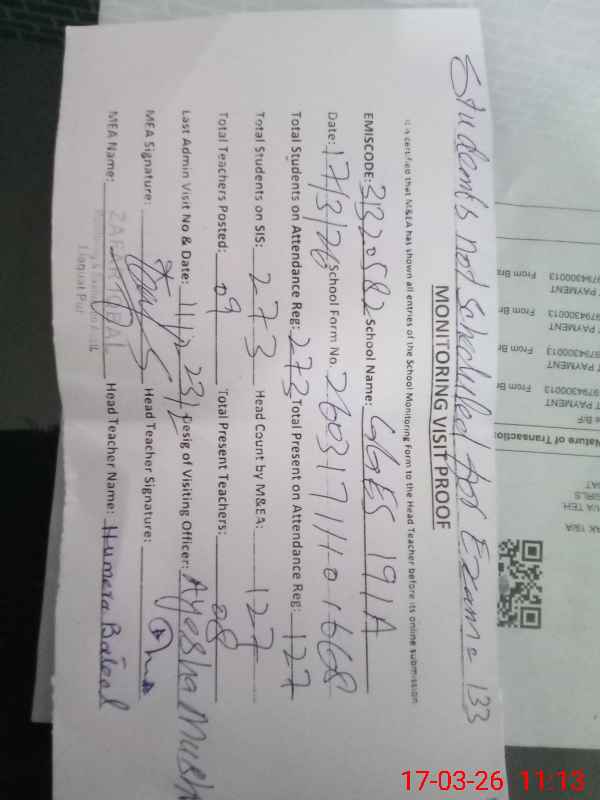 Students not scheduled for Exam = 133
MONITORING VISIT PROOF
It is certified that M&EA has shown all entries of the School Monitoring Form to the Head Teacher before its online submission
EMISCODE: 31320582 School Name: GGES 191A
Date: 17/3/26 School Form No. 2603171101668
Total Students on Attendance Reg: 273 Total Present on Attendance Reg: 127
Total Students on SIS: 273 Head Count by M&EA: 127
Total Teachers Posted: 09 Total Present Teachers: 08
Last Admin Visit No & Date: Desig of Visiting Officer: Ayesha
MEA Signature: Head Teacher Signature:
MEA Name: ZAFAR IQBAL Head Teacher Name: Humera
Liaquat Pur
Nature of Transaction
B/F
PAYMENT
79794300013 From
PAYMENT
79794300013 From
PAYMENT
79794300013 From
PAYMENT
79794300013 From
17-03-26 11:13